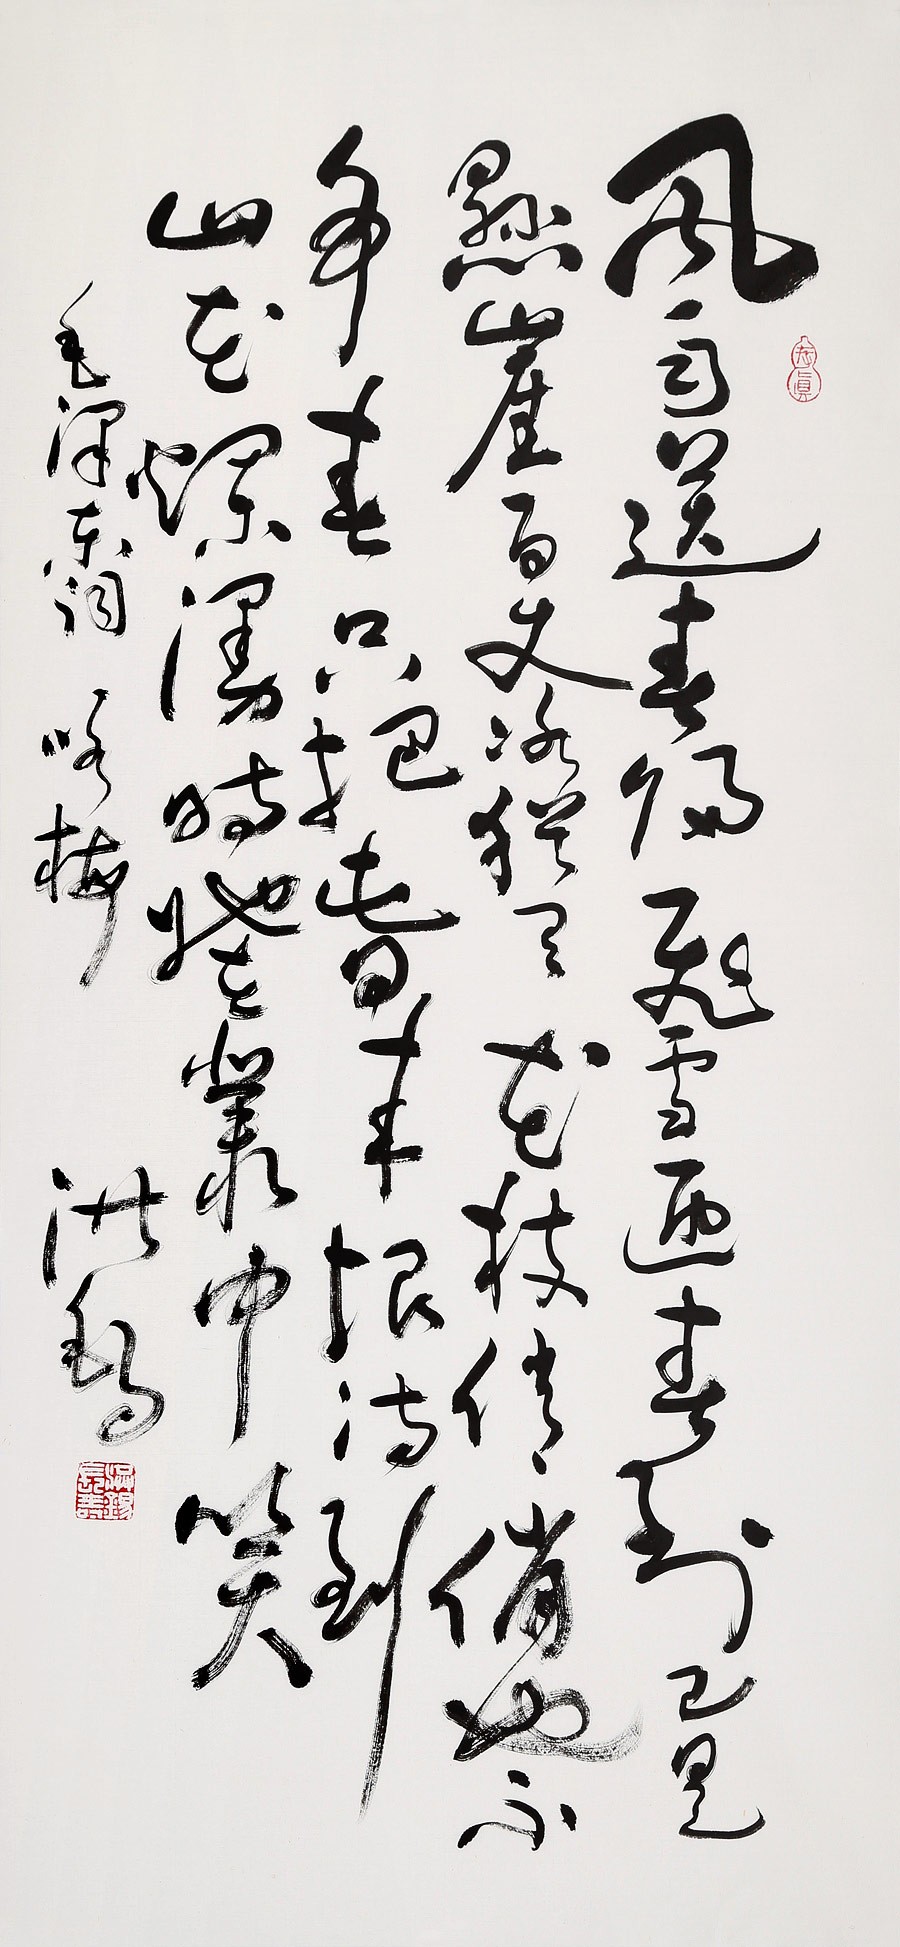 風雨送春歸飛雪迎春到已是
懸崖百丈冰猶有花枝俏俏也不
争春只把春来报待到
山花爛漫時她在叢中笑
毛澤东词 咏梅 洪